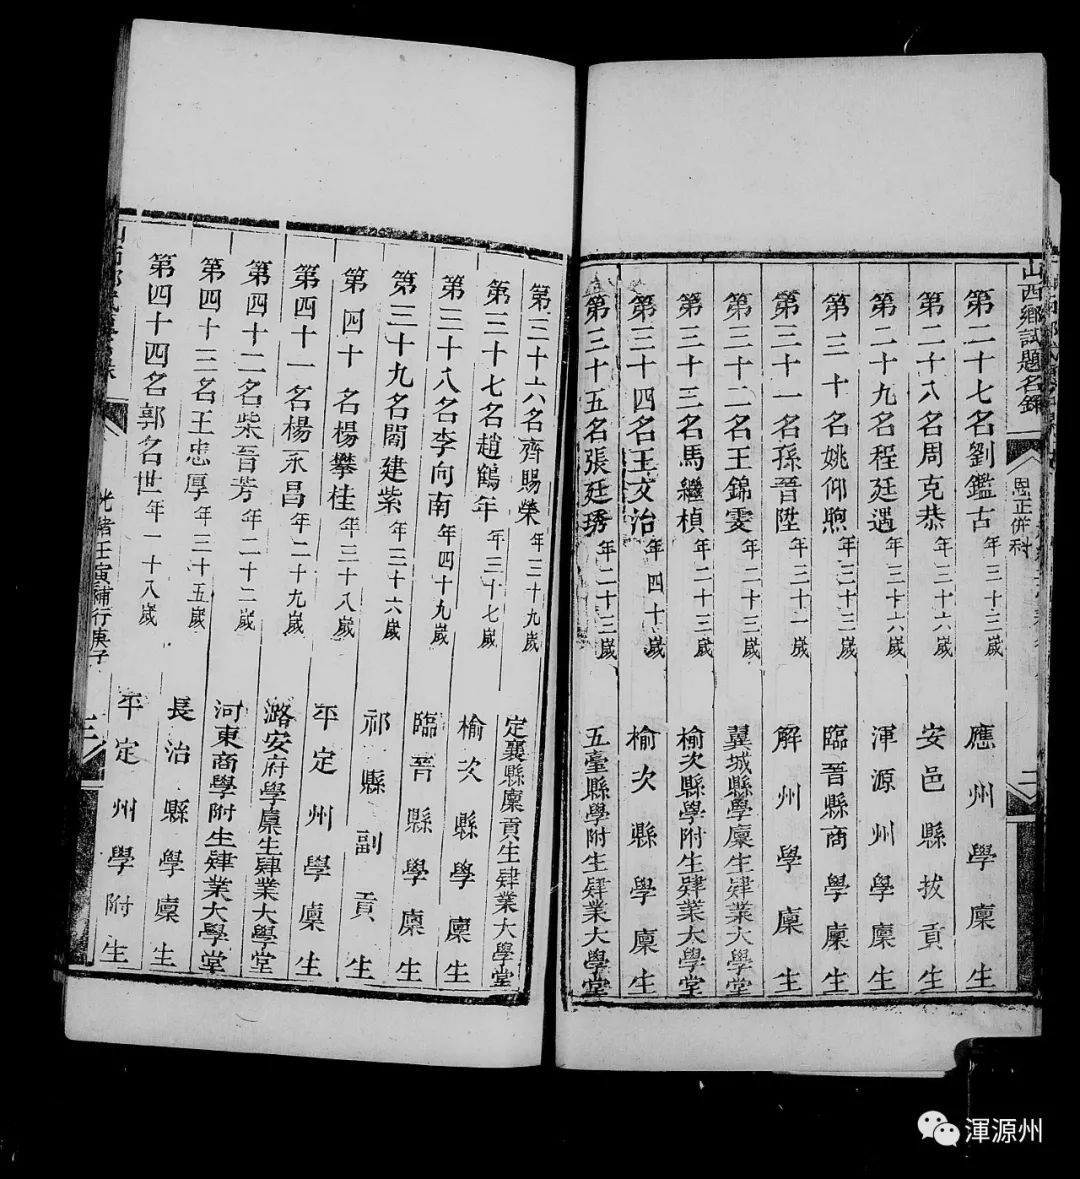 山西鄉試題名錄
恩正併科
二
第二十七名劉鑑古年三十三歲 應州學廩生
第二十八名周克恭年三十六歲 安邑縣拔貢生
第二十九名程廷遇年三十六歲 渾源州學廩生
第三十名姚仰煦年三十三歲 臨晉縣商學廩生
第三十一名孫晉陞年三十一歲 解州學廩生
第三十二名王錦雯年二十三歲 翼城縣學廩生肄業大學堂
第三十三名馬繼楨年二十三歲 榆次縣學附生肄業大學堂
第三十四名王文治年四十歲 榆次縣學廩生
第三十五名張廷琇年二十三歲 五臺縣學附生肄業大學堂
第三十六名齊賜榮年三十九歲 定襄縣廩貢生肄業大學堂
第三十七名趙鶴年年三十七歲 榆次縣學廩生
第三十八名李向南年四十九歲 臨晉縣學廩生
第三十九名閻建紫年三十六歲 祁縣副貢
第四十名楊攀桂年三十八歲 平定州學廩生
第四十一名楊永昌年二十九歲 潞安府學廩生肄業大學堂
第四十二名柴晉芳年二十二歲 河東商學附生肄業大學堂
第四十三名王忠厚年三十五歲 長治縣學廩生
第四十四名郭名世年一十八歲 平定州學附生
光緒壬寅補行庚子
三
渾源州